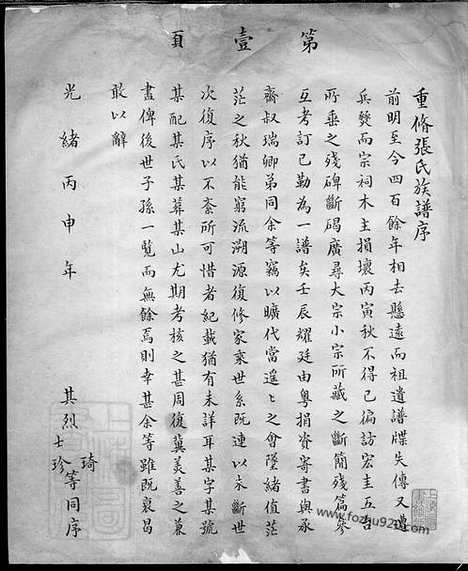 第壹頁
重脩張氏族譜序
前明至今四百餘年相去懸遠而祖遺譜牒失傳又遭
兵燹而宗祠木主損壞丙寅秋不得已徧訪宏圭五吾
所垂之殘碑斷碣廣尋大宗小宗所藏之斷簡殘篇參
互考訂已勤為一譜矣壬辰耀廷由粵捐資寄書與承
齋叔瑞卿弟同余等竊以曠代當遥々之會墜緒值茫
茫之秋猶能窮流溯源復修家乘世系既連以未斷世
次復序以不紊所可惜者紀載猶有未詳耳某字某號
某配某氏某葬某山尤期考核之甚周復冀美善之兼
盡俾後世子孫一覽而無餘焉則幸甚余等雖既衰曷
敢以辭
光緒丙申年
其烈
士珍
琦
等同序
www.fozhu920.com